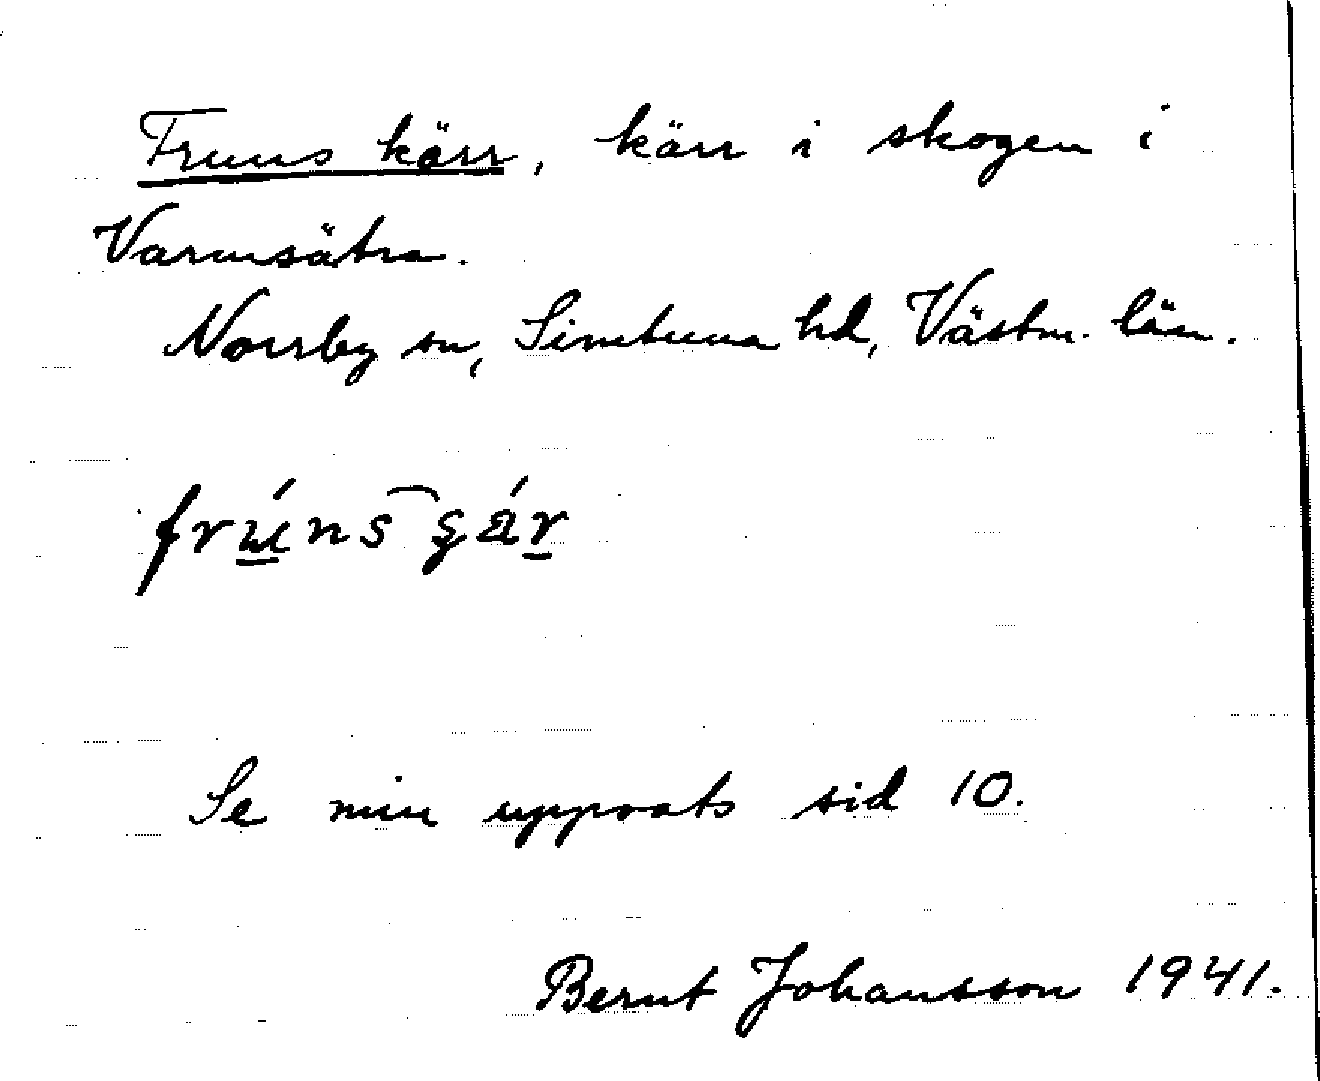 Fruns kärr, kärr i skogen i
Varmsätra.
Norrby sn, Simtuna hd, Västm. län.
frúns gä́r
Se min uppsats sid 10.
Bernt Johansson 1941.